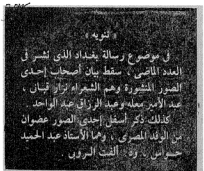 « تنويه »
فى موضوع رسالة بغداد الذى نشر فى
العدد الماضى ، سقط بيان أصحاب إحدى
الصور المنشورة وهم الشعراء نزار قبانى ،
عبد الأمير معله وعبد الرزاق عبد الواحد .
كذلك ذكر أسفل إحدى الصور عضوان
من الوفد المصرى ، وهما الأستاذ عبد الحميد
حواس ، ود . ألفت الروبى .